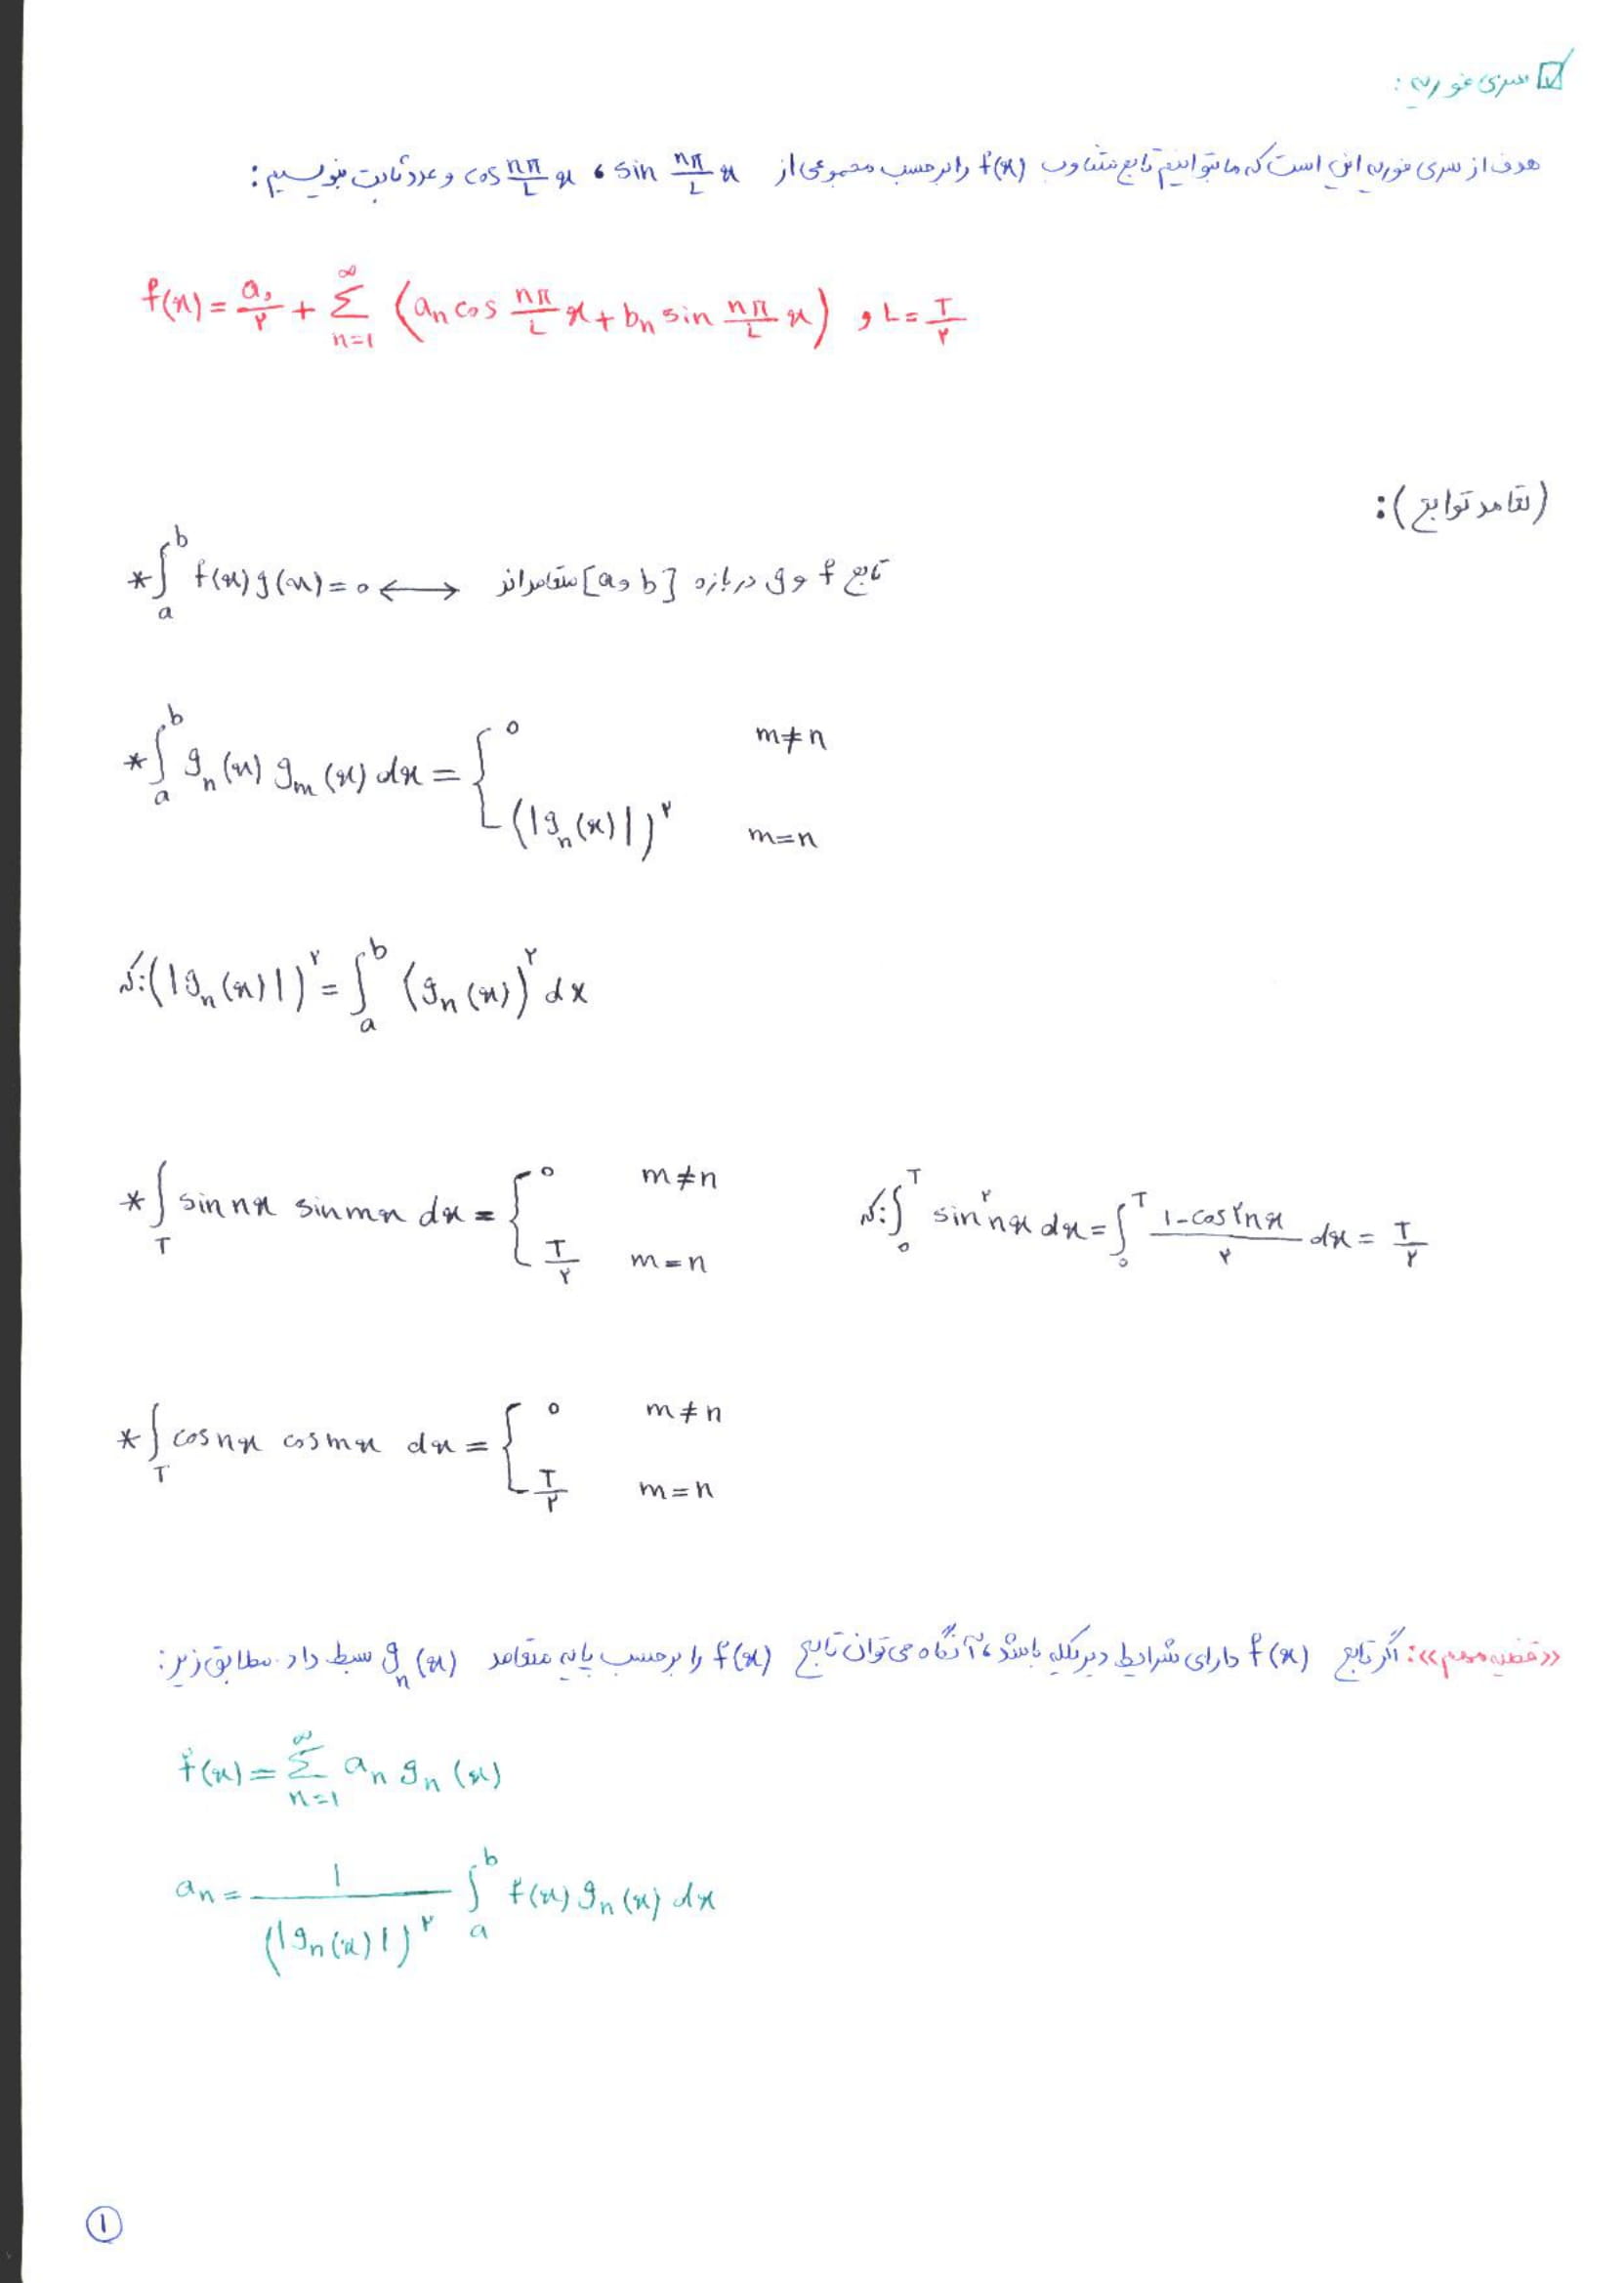 سری فوریه :
هدف از سری فوریه این است که ما بتوانیم تابع متناوب f(x) را برحسب مجموعی از sin nπ/L x ، cos nπ/L x و عدد ثابت بنویسیم :
f(x) = a₀/۲ + Σ_{n=1}^{∞} (aₙ cos nπ/L x + bₙ sin nπ/L x) , L = T/۲
(تعامد توابع) :
* ∫_a^b f(x) g(x) = 0 ⟷ تابع f و g در بازه [a, b] متعامداند
* ∫_a^b gₙ(x) gₘ(x) dx = { 0 m≠n
(|gₙ(x)|)^۲ m=n
نکته: (|gₙ(x)|)^۲ = ∫_a^b (gₙ(x))^۲ dx
* ∫_T sin nx sin mx dx = { 0 m≠n
T/۲ m=n
نکته: ∫_0^T sin^۲ nx dx = ∫_0^T (1-cos ۲nx)/۲ dx = T/۲
* ∫_T cos nx cos mx dx = { 0 m≠n
T/۲ m=n
«قضیه مهم» : اگر تابع f(x) دارای شرایط دیریکله باشد، آنگاه می توان تابع f(x) را برحسب پایه متعامد gₙ(x) بسط داد. مطابق زیر :
f(x) = Σ_{n=1}^{∞} aₙ gₙ(x)
aₙ = 1/(|gₙ(x)|)^۲ ∫_a^b f(x) gₙ(x) dx
۱